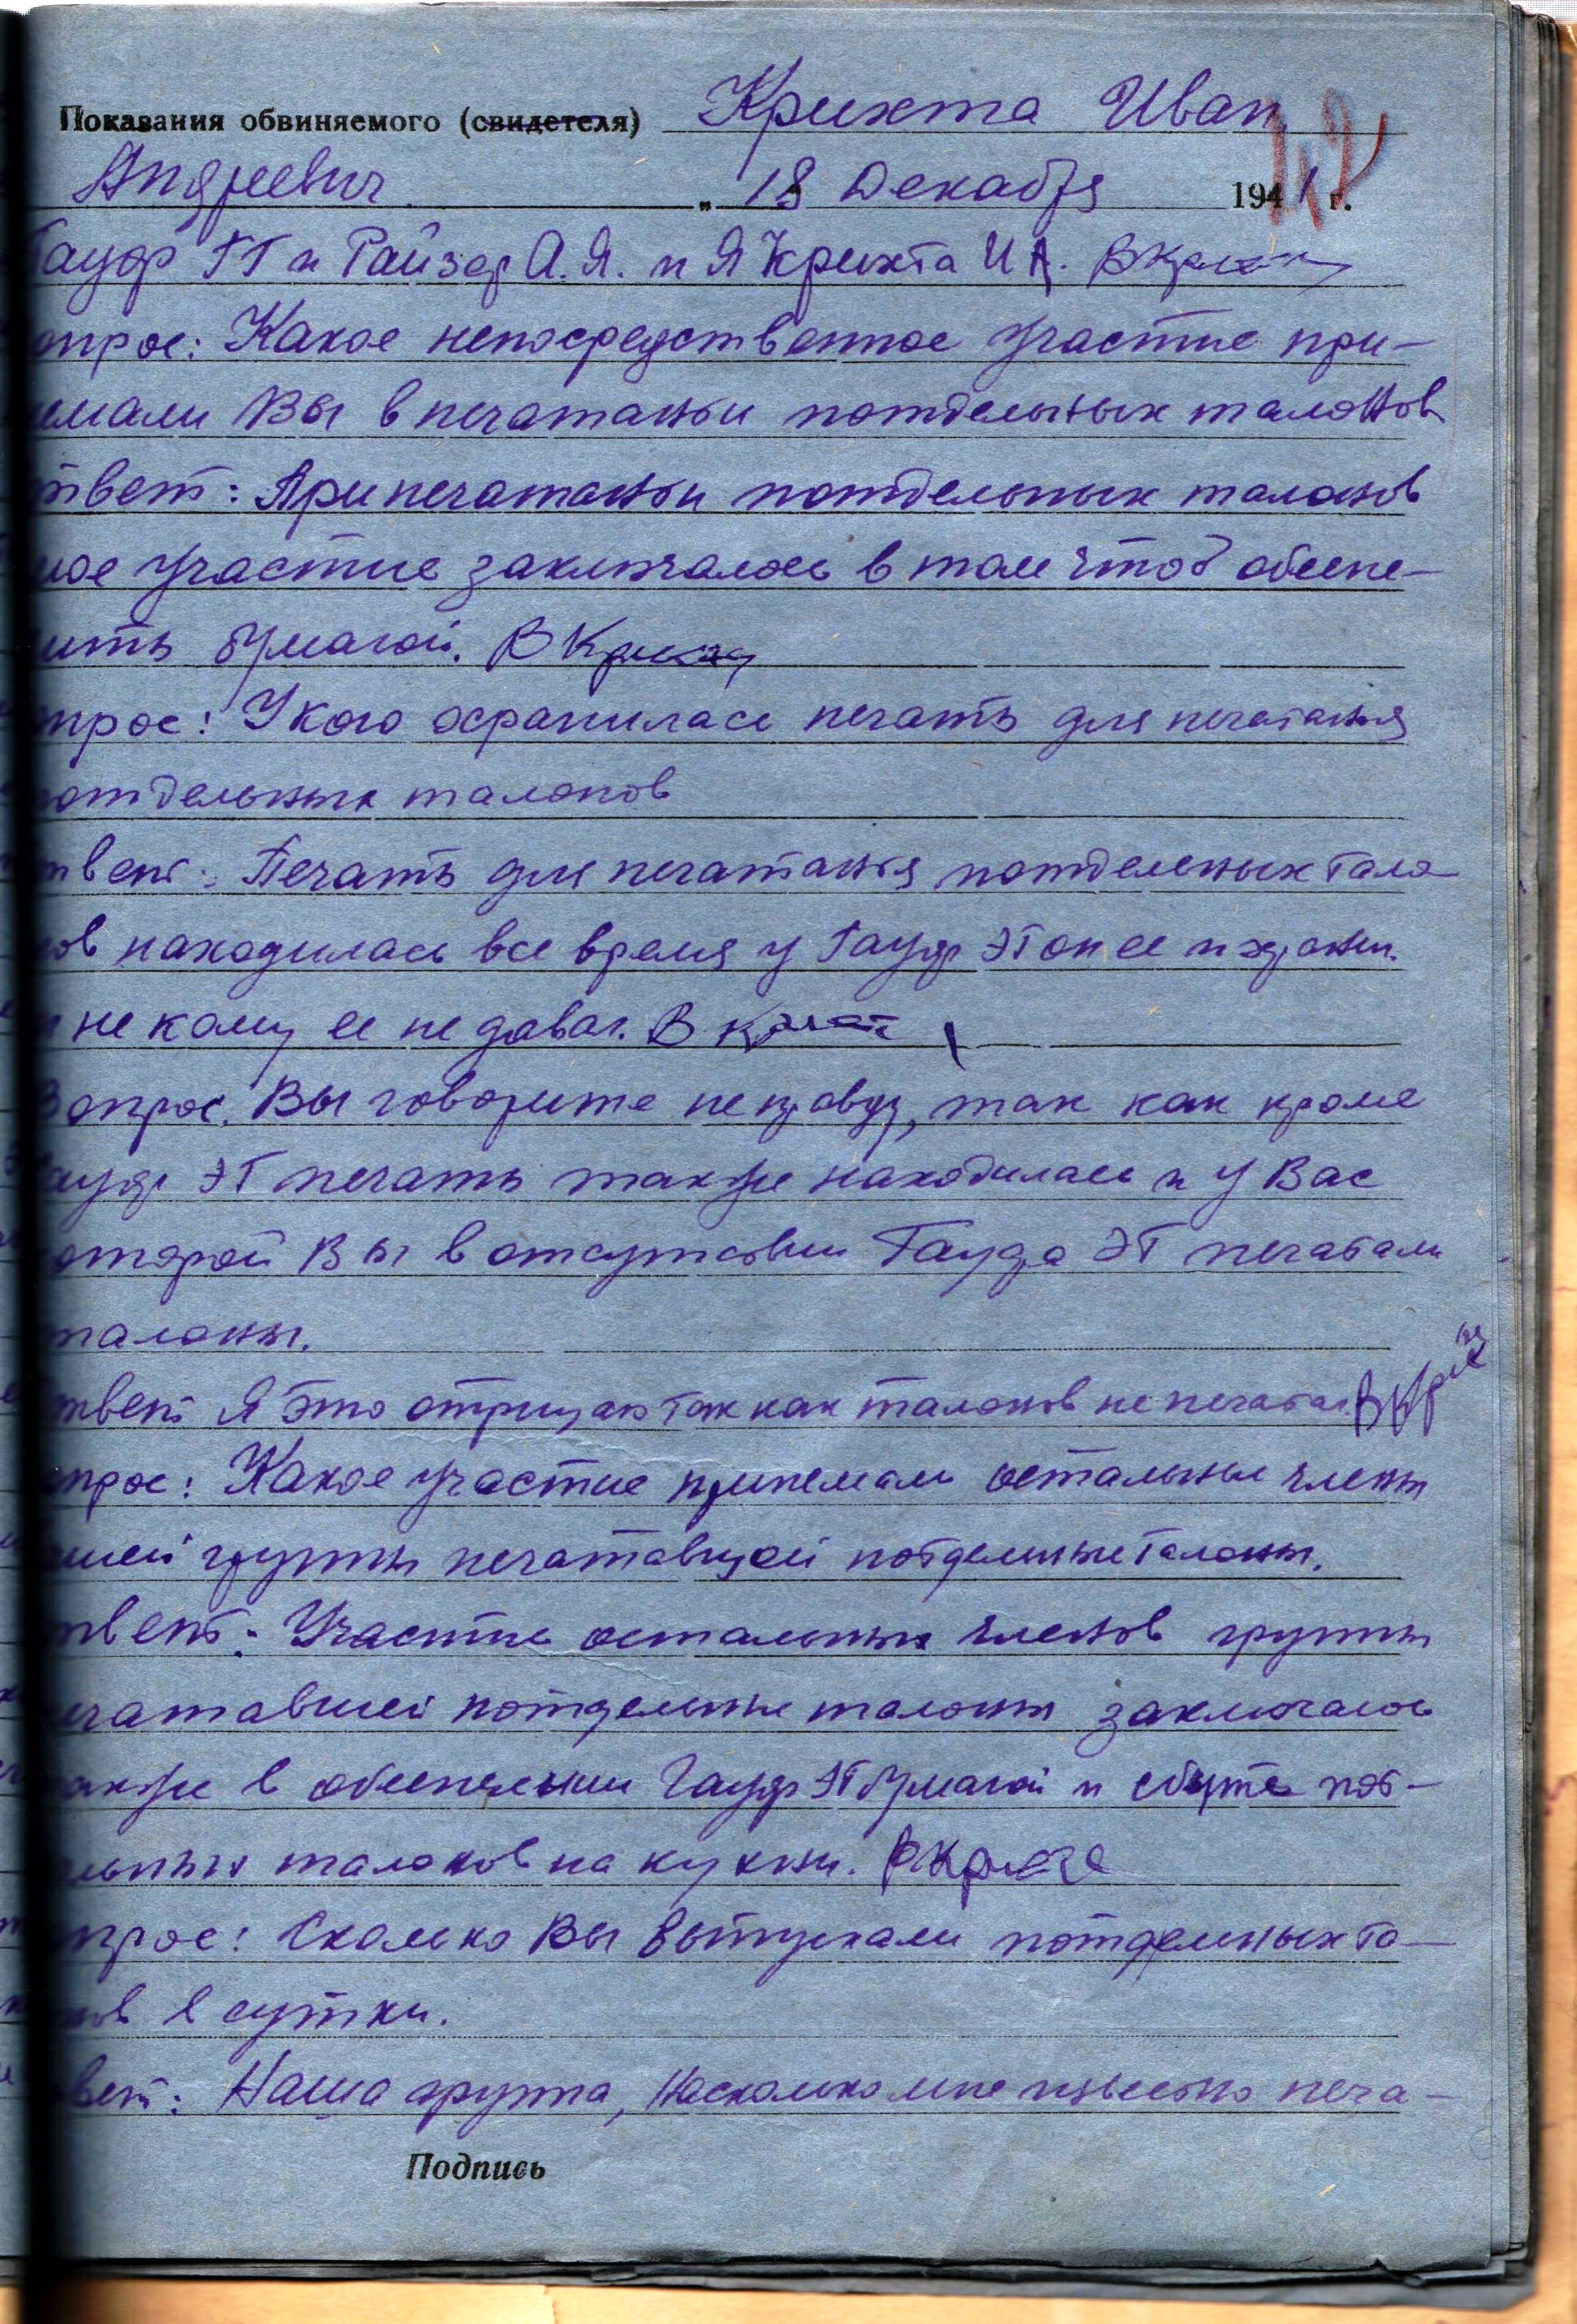 Показания обвиняемого (свидетеля) Крихта Иван
42
Андреевич „ 18 Декабря 1941 г.
Гауф ЭГ и Райзер А.Я. и Я Крихта И А.
опрос: Какое непосредственное Участие при-
емали Вы в печатаньи потдельных талонов
твет: При печатаньи потдельных талонов
мое Участие заключалось в том чтоб обеспе-
чить бумагой.
опрос: У кого охранилась печать для печатанья
отдельных талонов
твет: Печать для печатанья потдельных тало
ов находилась все время у Гауф ЭГ он ее и хранил.
и не кому ее не давал.
Вопрос. Вы говорите неправду, так как кроме
ауф ЭГ печать также находилась и у Вас
оторой Вы в отсутсвии Гауфа ЭГ печатали
талоны.
твет Я Это отрицаю так как талонов не печатал.
опрос: Какое Участие принемали остальные члены
ашей группы печатавшей потдельные талоны.
твет: Участие остальных членов группы
ечатавшей потдельные талоны заключалось
акже в обеспечении Гауф ЭГ бумагой и сбыте пот-
ельных талонов на кухни.
опрос: Сколько Вы выпускали потдельных та-
нов в сутки.
вет: Наша группа, Насколько мне известно печа-
Подпись